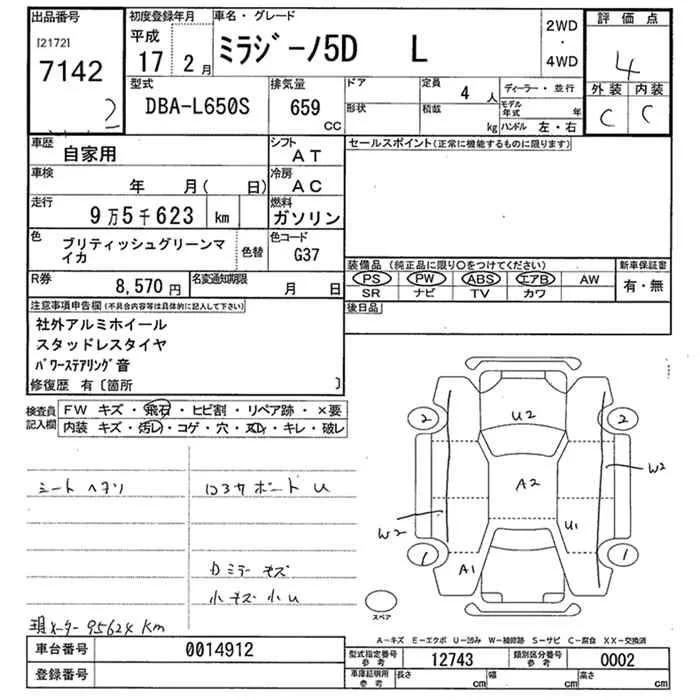 出品番号 初度登録年月 車名・グレード 評価点
[2172] 7142 2
平成 17 2月
ミラジーノ5D L
2WD・4WD
4
外装 内装
C C
型式 DBA-L650S
排気量 659 CC
ドア 定員 4人 ディーラー・並行
形状 積載 kg モデル年式 年
ハンドル 左・右
車歴 自家用
シフト AT
セールスポイント(正常に機能するものに限ります)
車検 年 月( 日)
冷房 AC
走行 9万5千623 km
燃料 ガソリン
色 ブリティッシュグリーンマイカ
色替
色コード G37
装備品 (純正品に限り○をつけてください) 新車保証書
PS PW ABS エアB AW 有・無
SR ナビ TV カワ
R券 8,570円
名変通知期限 月 日
後日品
注意事項申告欄(不具合内容等は具体的に記入して下さい)
社外アルミホイール
スタッドレスタイヤ
パワーステアリング音
修復歴 有〔箇所 〕
検査員記入欄
FW キズ・飛石・ヒビ割・リペア跡・×要
内装 キズ・汚レ・コゲ・穴・・キレ・破レ
シートヘタリ
ボード U
ミラー キズ
小キズ 小U
現メーター 95624 Km
2 U2 2
W2
A2
W2 U1
1 A1 1
スペア
A-キズ E-エクボ U-凹み W-補修跡 S-サビ C-腐食 XX-交換済
車台番号 0014912
型式指定番号 参考 12743
類別区分番号 参考 0002
登録番号
車庫証明用 参考 長さ cm 幅 cm 高さ cm